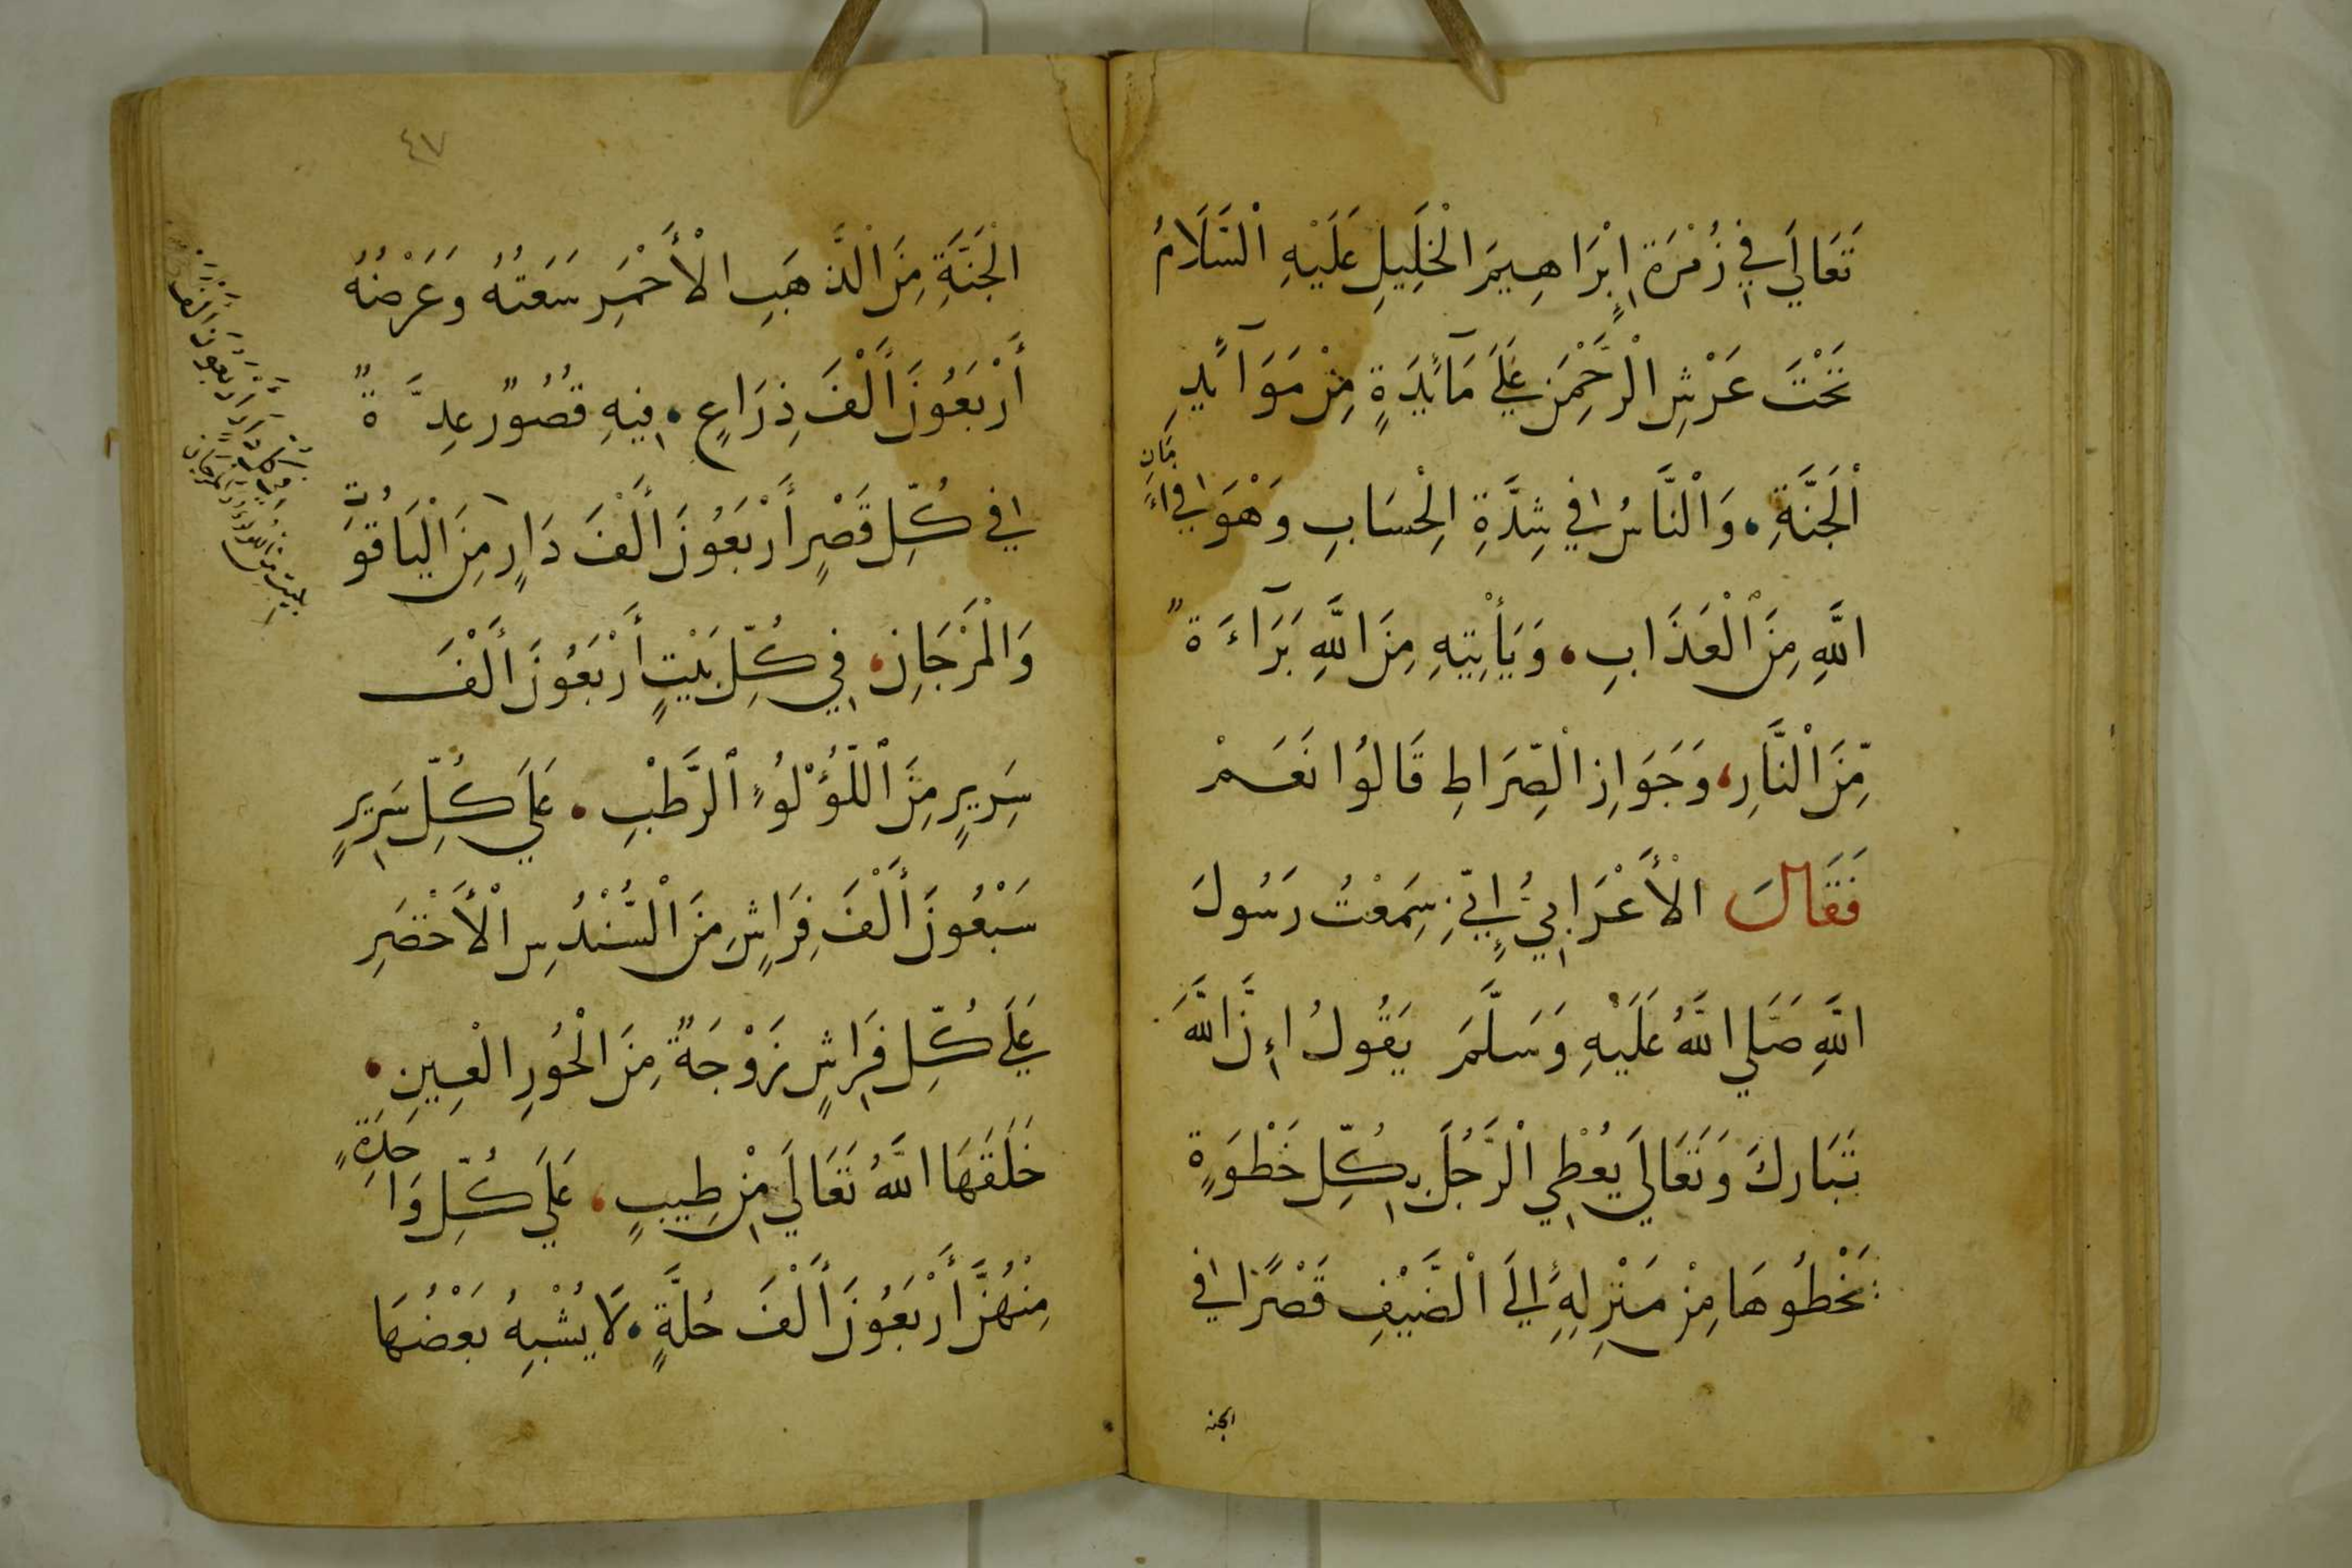 تَعَالَي فِي زُمْرَةِ اِبْرَاهِيمَ الْخَلِيلِ عَلَيْهِ الْسَّلَامُ
تَحْتَ عَرْشِ الْرَّحْمٰنِ عَلَيَ مَآئِدَةٍ مِنْ مَوَآئِدِ
اْلْجَنَّةِ، وَاْلنَّاسُ فِي شِدَّةِ الْحِسَابِ وَهْوَ فِي اَمَانِ
اللَّهِ مِنَ اْلْعَذَابِ، وَيَأْتِيهِ مِنَ اللَّهِ بَرَآءَةً
مِّنَ اْلنَّارِ، وَجَوَازِ الْصِّرَاطِ قَالُوا نَعَمْ
فَقَالَ الْأَعْرَابِيُّ إِنِّي سَمِعْتُ رَسُولَ
اللَّهِ صَلَّي اللَّهُ عَلَيْهِ وَسَلَّمَ يَقُولُ إِنَّ اللَّهَ
تَبَارَكَ وَتَعَالَي يُعْطِي الْرَّجُلَ بِكُلِّ خَطْوَةٍ
يَخْطُوهَا مِنْ مَنْزِلِهِ إِلَيَ اْلْضَّيْفِ قَصْرًا فِي
الجنة
٤٧
الْجَنَّةِ مِنَ اْلْذَّهَبِ الْأَحْمَرِ سَعَتُهُ وَعَرْضُهُ
أَرْبَعُونَ أَلْفَ ذِرَاعٍ، فِيهِ قُصُورٌ عِدَّةً
فِي كُلِّ قَصْرٍ أَرْبَعُونَ أَلْفَ دَارٍ مِنَ اْلْيَاقُوَتِ
وَالْمَرْجَانِ، فِي كُلِّ بَيْتٍ أَرْبَعُونَ أَلْفَ
سَرِيرٍ مِنَ اْللُّؤْلُؤِ اْلْرَّطْبِ، عَلَي كُلِّ سَرِيرٍ
سَبْعُونَ أَلْفَ فِرَاشٍ مِنَ اْلْسُّنْدُسِ اْلْأَخْضَرِ
عَلَيَ كُلِّ فِرَاشٍ زَوْجَةً مِنَ الْحُورِ الْعِينِ،
خَلَقَهَا اللَّهُ تَعَالَي مِنْ طِيبٍ، عَلَيَ كُلِّ وَاحِدَةٍ
مِنْهُنَّ أَرْبَعُونَ أَلْفَ حُلَّةٍ، لَا يُشْبِهُ بَعْضُهَا